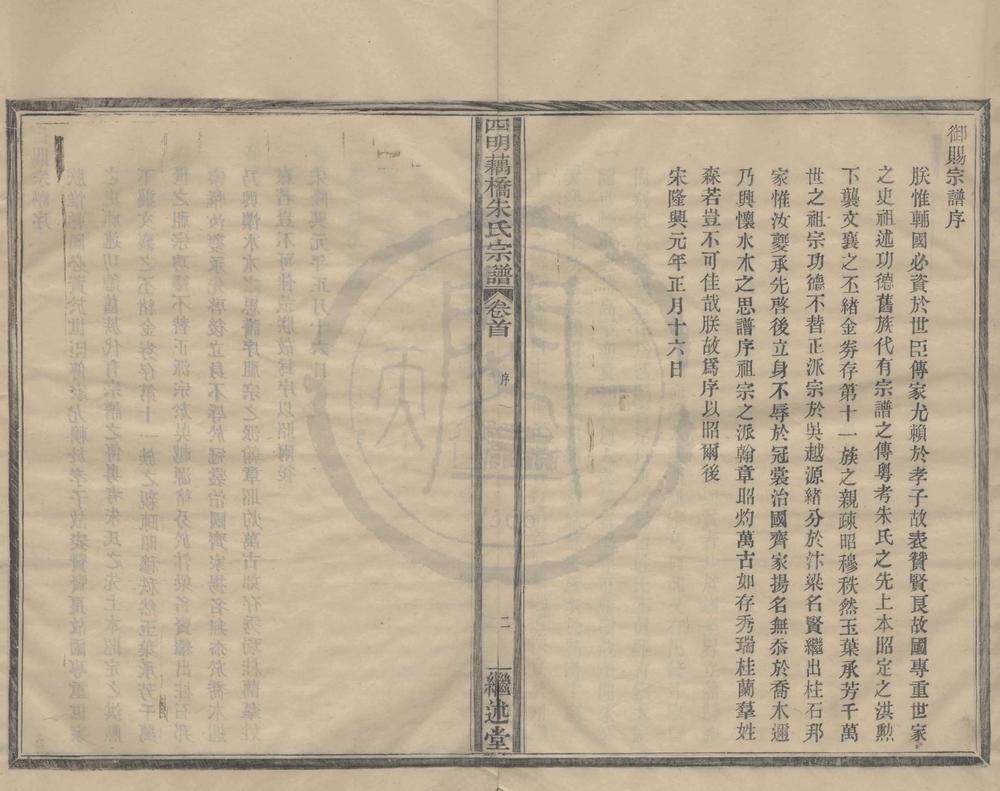 御賜宗譜序
朕惟輔國必資於世臣傳家尤賴於孝子故表贊賢良故國專重世家
之史祖述功德舊族代有宗譜之傳粵考朱氏之先上本昭定之洪勲
下襲文襄之丕緒金劵存第十一族之親疎昭穆秩然玉葉承芳千萬
世之祖宗功德不替正派宗於吳越源緒分於汴梁名賢繼出柱石邦
家惟汝夔承先啓後立身不辱於冠裳治國齊家揚名無忝於喬木邇
乃興懷水木之思譜序祖宗之派翰章昭灼萬古如存秀瑞桂蘭羣姓
森若豈不可佳哉朕故爲序以昭爾後
宋隆興元年正月十六日
四明藕橋朱氏宗譜 卷首 序 二 繼述堂